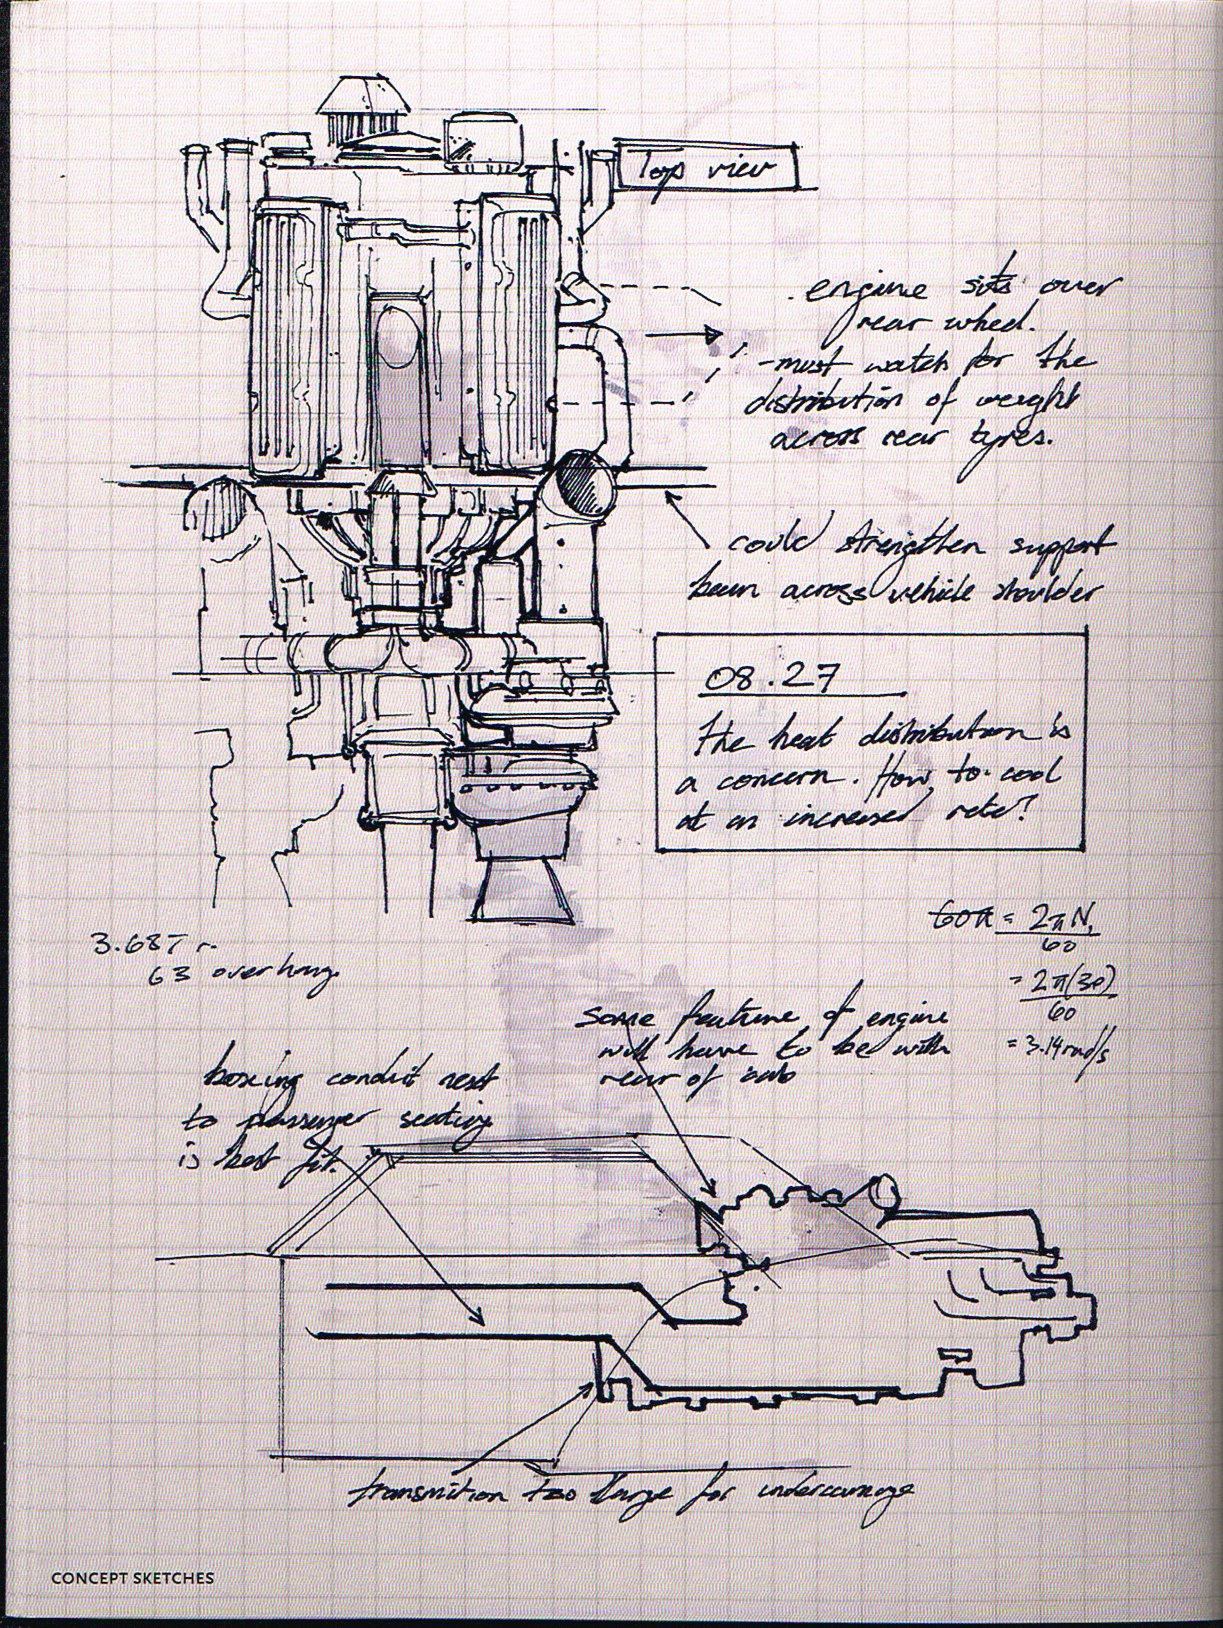 Top view
engine sits over
rear wheel.
-must watch for the
distribution of weight
across rear tyres.
could strengthen support
beam across vehicle shoulder
08.27
The heat distribution is
a concern. How to cool
at an increased rate?
60π = 2πN,
60
= 2π(30)
60
= 3.14 rad/s
3.687
63 overhang
some feature of engine
will have to be with
rear of cab
boxing conduit next
to passenger seating
is best fit.
transmition too large for undercarrage
CONCEPT SKETCHES